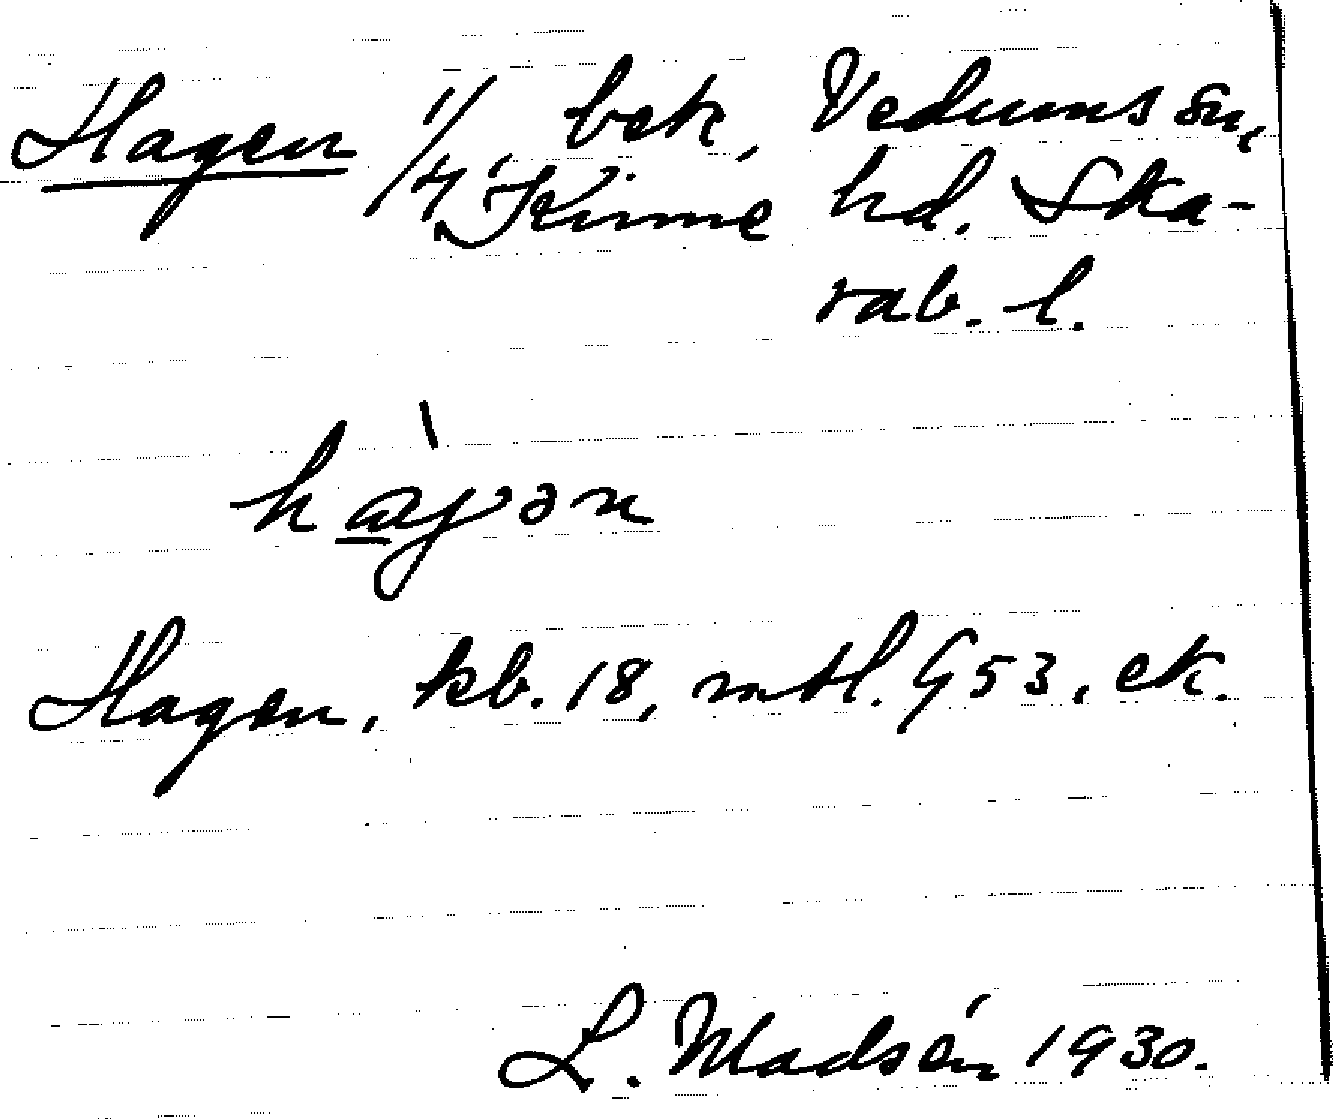 Hagen 1/4 bek, Vedums sn,
Kinne hd. Ska-
rab. l.
hàgən
Hagen, kb. 18, mtl. G53, ek.
L. Madsén 1930.